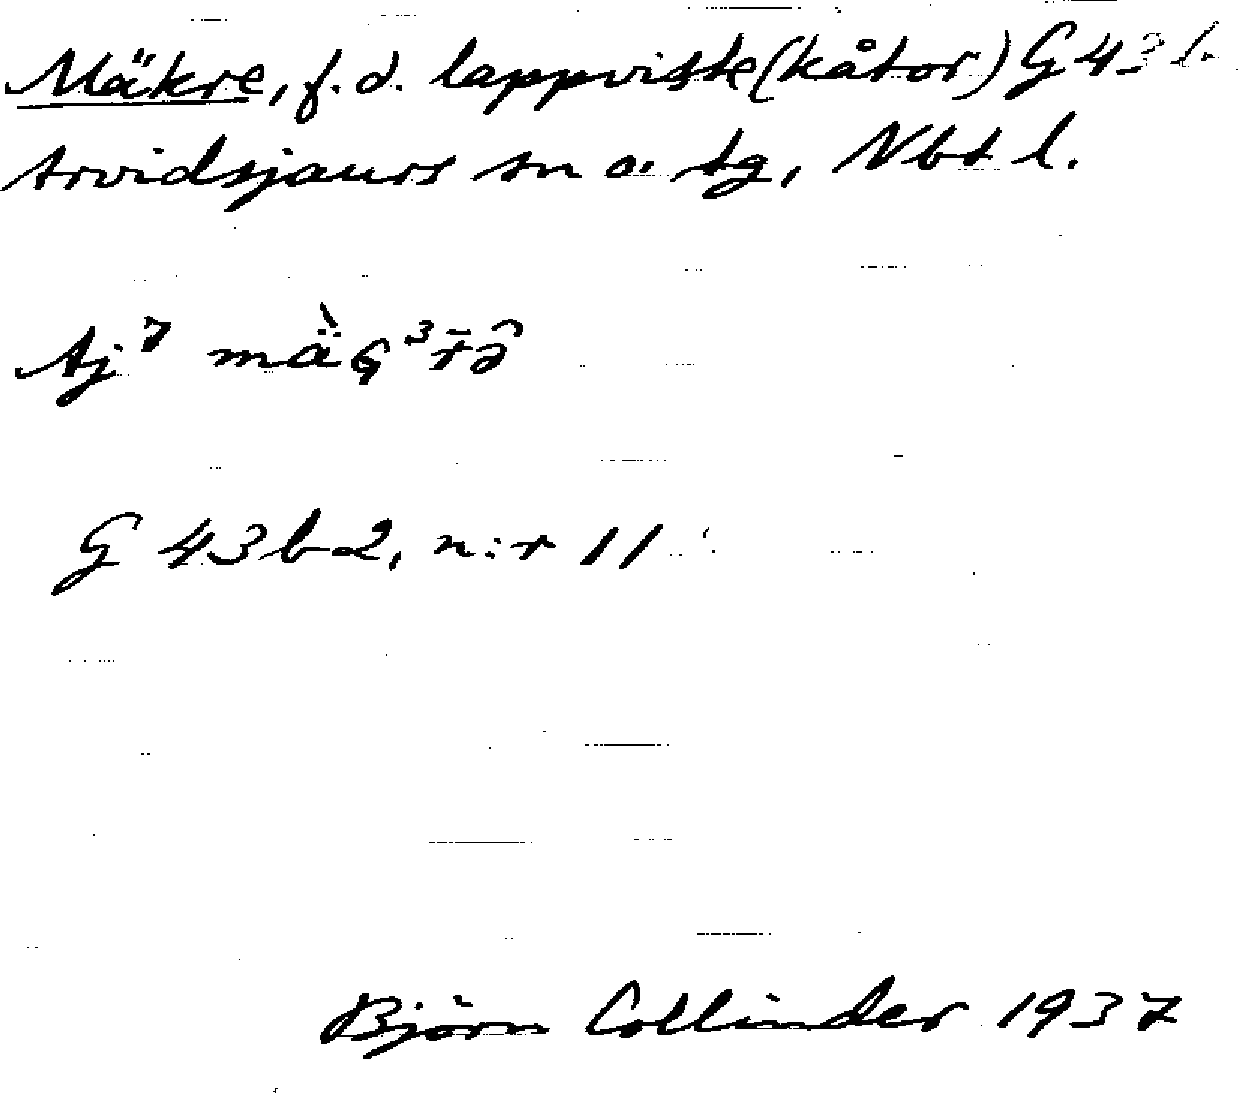 Mäkre, f.d. lappviste (kåtor) G 43 b
Arvidsjaurs sn o. tg, Nbt l.
Aj⁷
G 43 b 2, n:r 11
Björn Collinder 1937